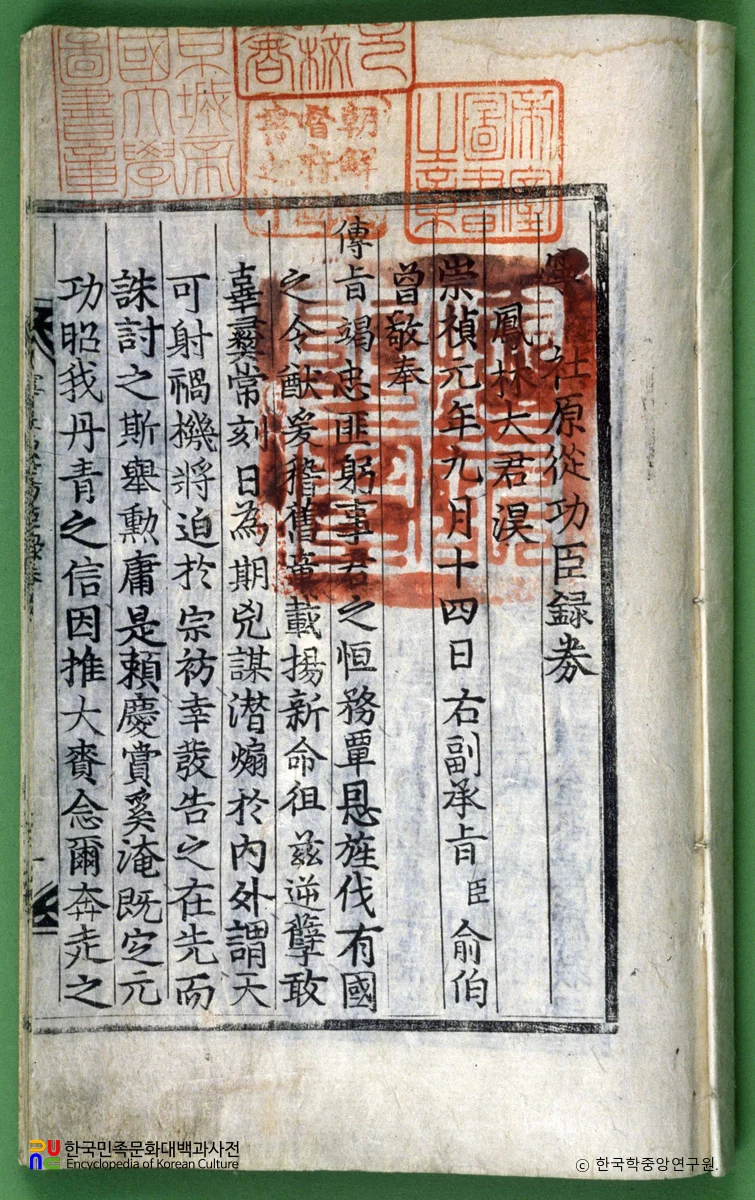 寧社原從功臣録券
鳳林大君淏
崇禎元年九月十四日右副承旨臣俞伯
曾敬奉
傳旨竭忠匪躬事君之恒務覃恩旌伐有國
之令猷爰稽舊章載揚新命徂玆逆孽敢
辜彛常刻日為期兇謀潛煽於內外謂天
可射禍機將迫於宗祊幸發告之在先而
誅討之斯舉勳庸是賴慶賞奚淹既㝎元
功昭我丹青之信因推大賚念爾奔走之
帝室圖書之章
京城帝國大學圖書章
한국민족문화대백과사전
Encyclopedia of Korean Culture
© 한국학중앙연구원.